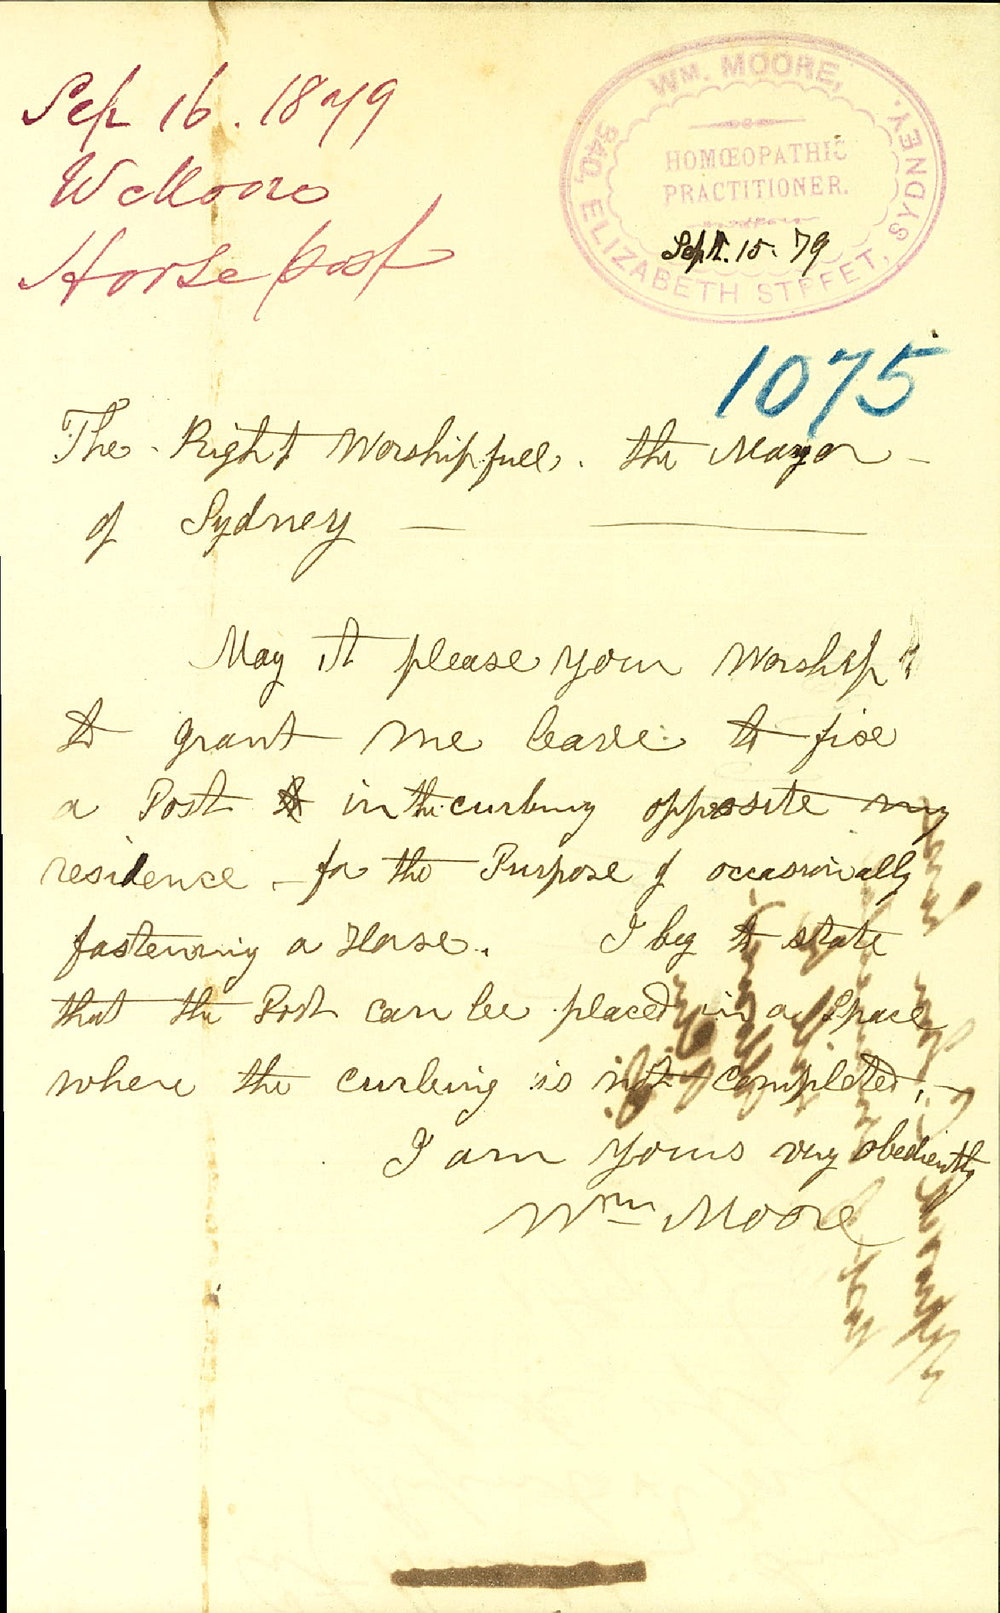 Sep 16. 1879
W Moore
Horse post
WM. MOORE,
HOMŒOPATHIC
PRACTITIONER.
340, ELIZABETH STREET, SYDNEY.
Sept. 15. 79
1075
The Right Worshipfull. the Mayor
of Sydney
May it please your Worship
to grant me leave to fixe
a Post in the curbing opposite my
residence – for the Purpose of occassionally
fastening a Horse. I beg to state
that the Post can be placed in a Space
where the curbing is not completed.
I am yours very obediently
Wm Moore